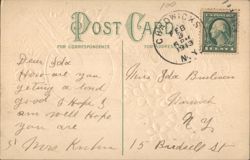 100
POST CARD
FOR CORRESPONDENCE
FOR ADDRESS
CHADWICKS
FEB
1913
N.Y.
Dear Ida
How are you
geting a long
good I hope I
am well hope
you are
Mrs
Miss Ida
Norwich
N Y
15 St